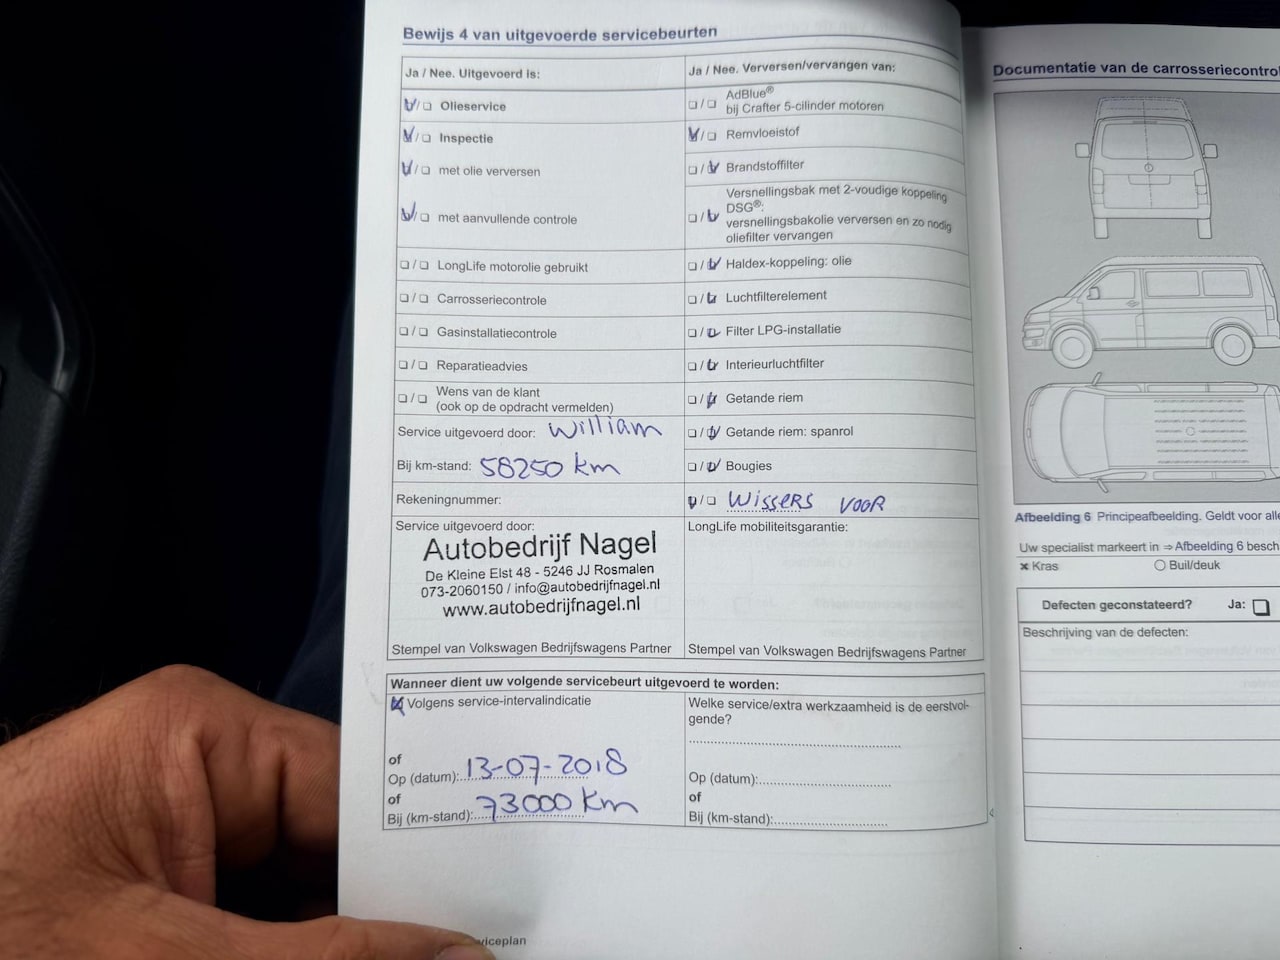 Bewijs 4 van uitgevoerde servicebeurten
Ja / Nee. Uitgevoerd is:
Olieservice
Inspectie
met olie verversen
met aanvullende controle
LongLife motorolie gebruikt
Carrosseriecontrole
Gasinstallatiecontrole
Reparatieadvies
Wens van de klant
(ook op de opdracht vermelden)
Service uitgevoerd door: William
Bij km-stand: 58250 km
Rekeningnummer:
Service uitgevoerd door:
Autobedrijf Nagel
De Kleine Elst 48 - 5246 JJ Rosmalen
073-2060150 / info@autobedrijfnagel.nl
www.autobedrijfnagel.nl
Stempel van Volkswagen Bedrijfswagens Partner
Ja / Nee. Verversen/vervangen van:
AdBlue®
bij Crafter 5-cilinder motoren
Remvloeistof
Brandstoffilter
Versnellingsbak met 2-voudige koppeling
DSG®:
versnellingsbakolie verversen en zo nodig
oliefilter vervangen
Haldex-koppeling: olie
Luchtfilterelement
Filter LPG-installatie
Interieurluchtfilter
Getande riem
Getande riem: spanrol
Bougies
WISSERS VOOR
LongLife mobiliteitsgarantie:
Stempel van Volkswagen Bedrijfswagens Partner
Wanneer dient uw volgende servicebeurt uitgevoerd te worden:
Volgens service-intervalindicatie
of
Op (datum): 13-07-2018
of
Bij (km-stand): 73000 km
Welke service/extra werkzaamheid is de eerstvol-
gende?
Op (datum):
of
Bij (km-stand):
viceplan
Documentatie van de carrosseriecontrol
Afbeelding 6 Principeafbeelding. Geldt voor alle
Uw specialist markeert in ⇒ Afbeelding 6 besch
× Kras
Buil/deuk
Defecten geconstateerd? Ja:
Beschrijving van de defecten: